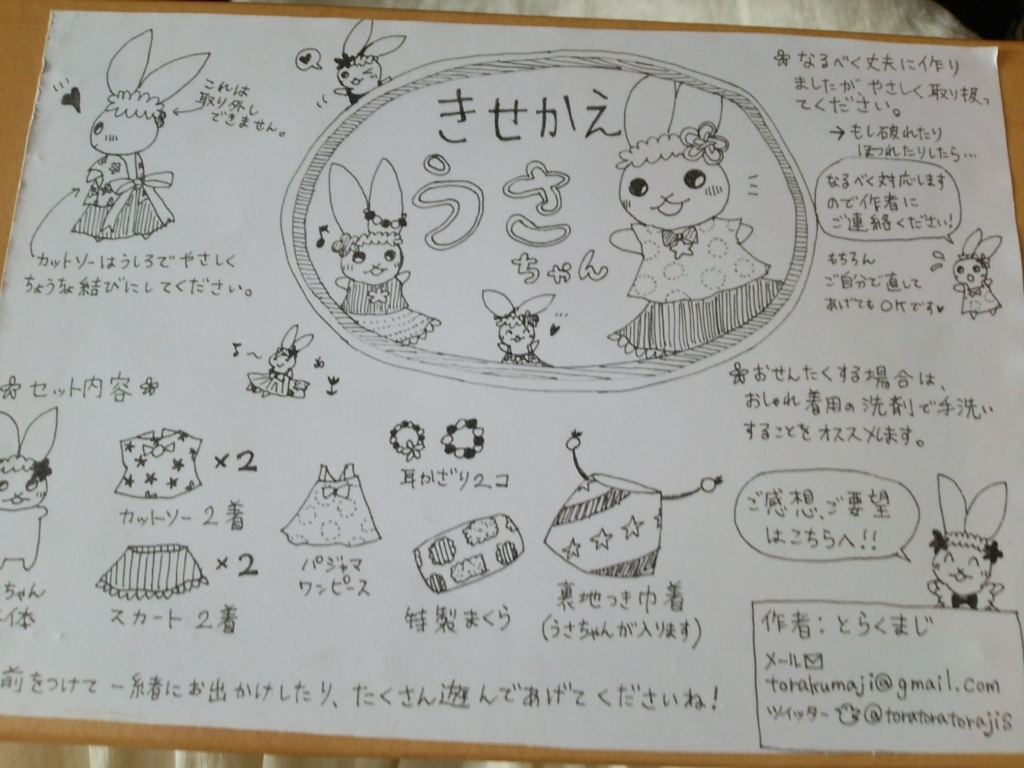 きせかえ
うさ
ちゃん
これは
取り外し
できません。
カットソーはうしろでやさしく
ちょうちょ結びにしてください。
なるべく丈夫に作り
ましたが、やさしく取り扱っ
てください。
→もし破れたり
ほつれたりしたら…
なるべく対応します
ので作者に
ご連絡ください!
もちろん
ご自分で直して
あげてもOKです♥
おせんたくする場合は、
おしゃれ着用の洗剤で手洗い
することをオススメします。
セット内容
ちゃん
体
×2
カットソー 2着
×2
スカート 2着
パジャマ
ワンピース
耳かざり2コ
特製まくら
裏地つき巾着
(うさちゃんが入ります)
ご感想、ご要望
はこちらへ!!
作者:とらくまじ
メール✉
torakumaji@gmail.com
ツイッター @toratoratorajis
前をつけて一緒にお出かけしたり、たくさん遊んであげてくださいね!